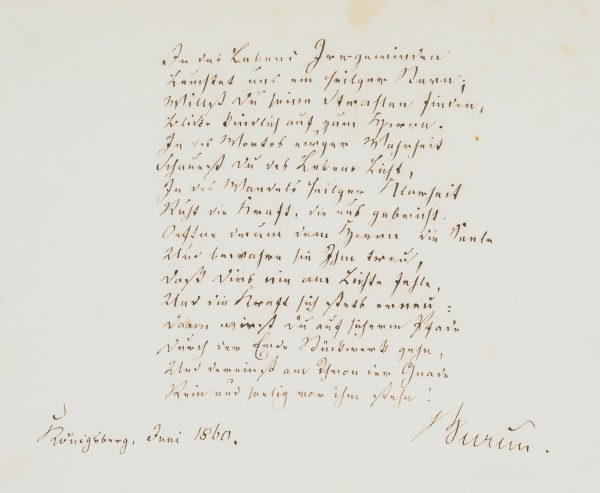 In des Lebens Irrgewinden
Leuchtet uns ein heilger Stern;
Willst Du seine Strahlen finden,
Blicke kindlich auf zum Herrn.
In des Wortes ewger Wahrheit
Schauest Du des Lebens Licht,
In des Wandels heilger Klarheit
Ruht die Kraft, die uns gebricht.
Oeffne darum dem Herrn die Seele
Und bewahre sie Ihm treu,
Daß Dirs nie am Lichte fehle,
Und die Kraft sich stets erneu:
Dann wirst Du auf sicherm Pfade
Durch der Erde Stückwerk gehn,
Und dereinst am Thron der Gnade
Rein und seelig vor ihm stehn!
Königsberg, Juni 1860.